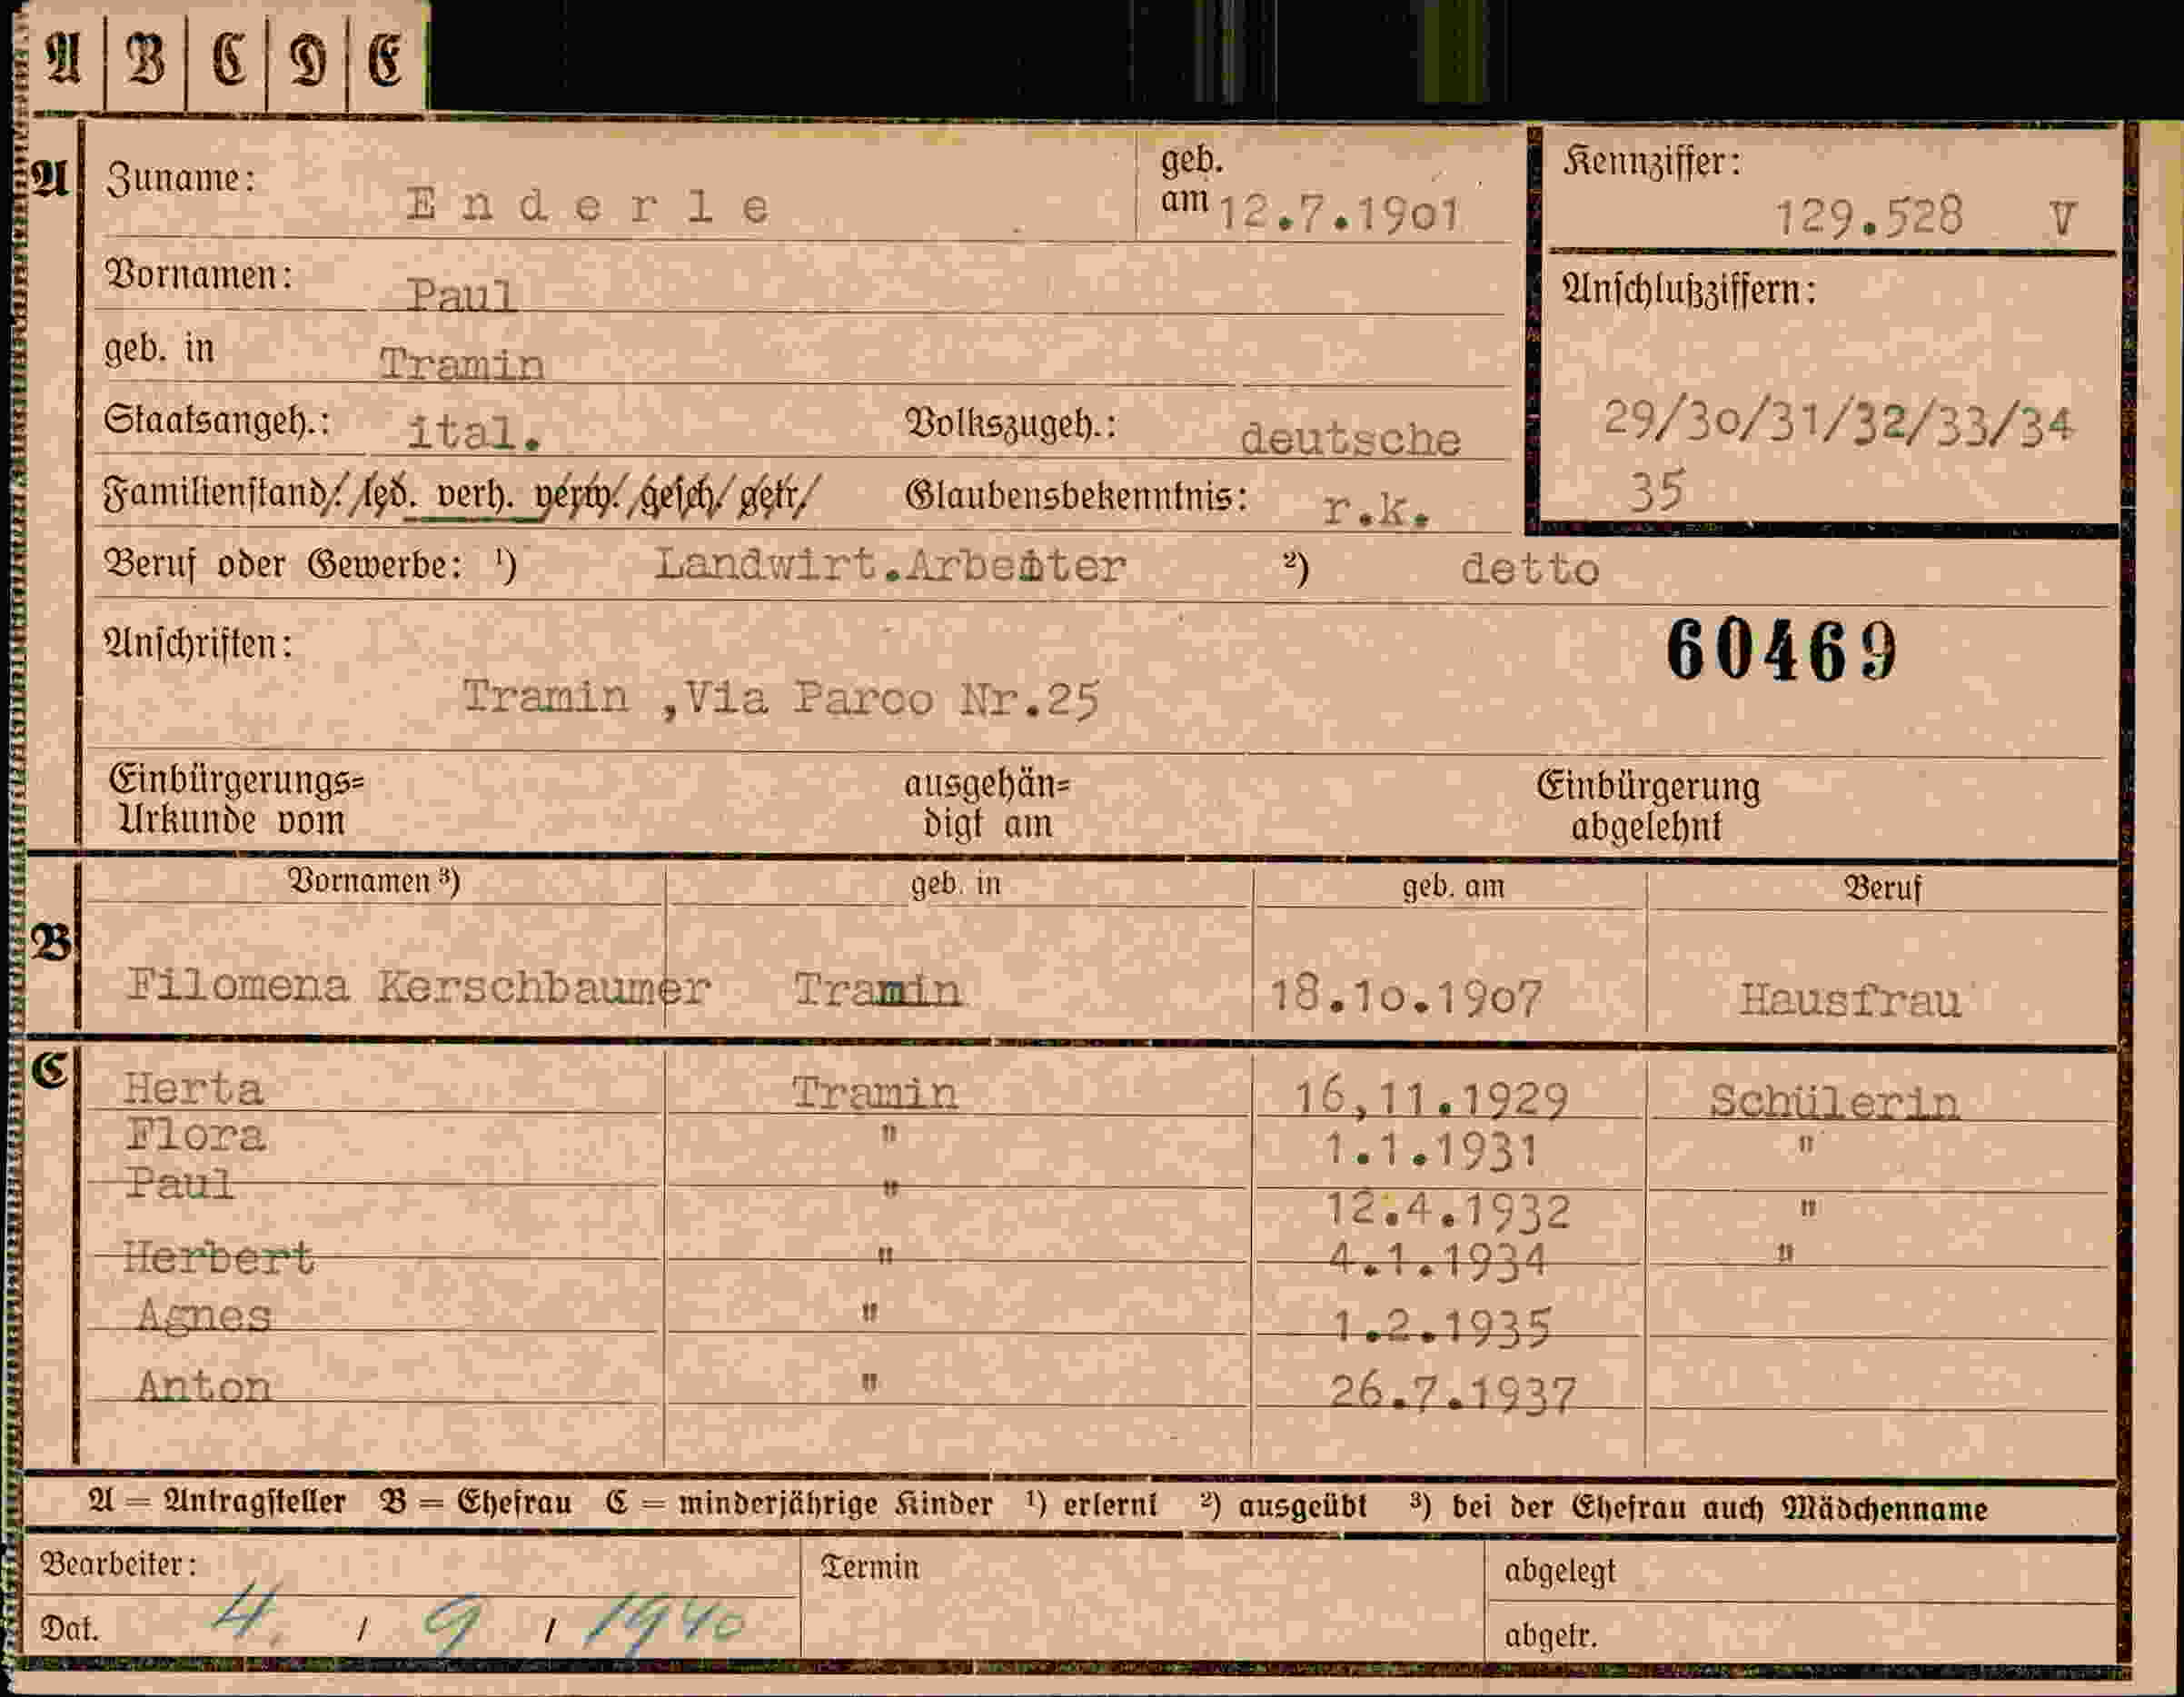 A | B | C | D | E
A Zuname: Enderle geb. am 12.7.1901 Kennziffer: 129.528 V
Vornamen: Paul Anschlußziffern:
geb. in Tramin
Staatsangeh.: ital. Volkszugeh.: deutsche 29/30/31/32/33/34
Familienstand: led. verh. verw. gesch. getr. Glaubensbekenntnis: r.k. 35
Beruf oder Gewerbe: ¹) Landwirt.Arbeiter ²) detto
Anschriften: 60469
Tramin ,Via Parco Nr.25
Einbürgerungs= ausgehän= Einbürgerung
Urkunde vom digt am abgelehnt
Vornamen ³) geb. in geb. am Beruf
B
Filomena Kerschbaumer Tramin 18.10.1907 Hausfrau
C Herta Tramin 16,11.1929 Schülerin
Flora " 1.1.1931 "
Paul " 12.4.1932 "
Herbert " 4.1.1934 "
Agnes " 1.2.1935
Anton " 26.7.1937
A = Antragsteller B = Ehefrau C = minderjährige Kinder ¹) erlernt ²) ausgeübt ³) bei der Ehefrau auch Mädchenname
Bearbeiter: Termin abgelegt
Dat. 4. / 9 / 1940 abgetr.